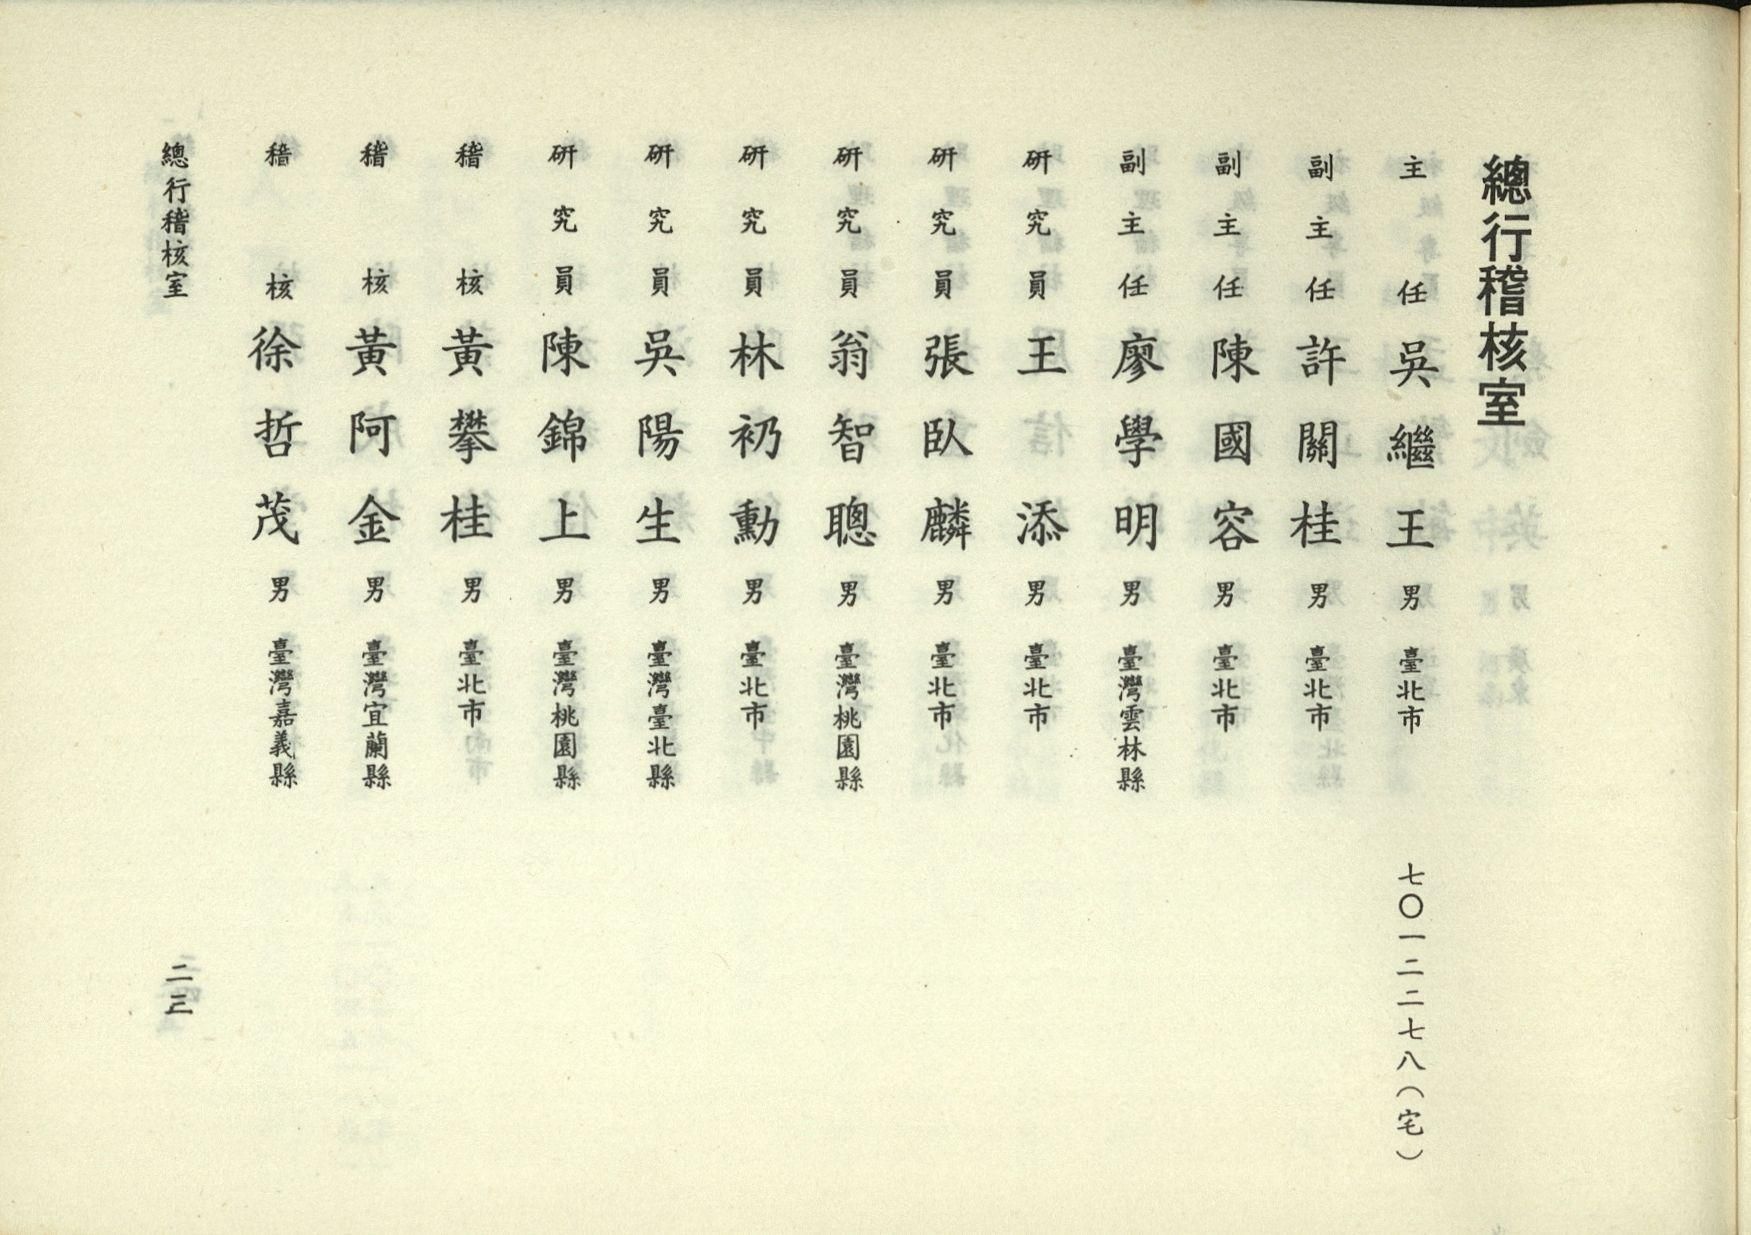 總行稽核室
主任吳繼王男臺北市七〇一二二七八（宅）
副主任許關桂男臺北市
副主任陳國容男臺北市
副主任廖學明男臺灣雲林縣
研究員王添男臺北市
研究員張臥麟男臺北市
研究員翁智聰男臺灣桃園縣
研究員林礽勳男臺北市
研究員吳陽生男臺灣臺北縣
研究員陳錦上男臺灣桃園縣
稽核黃攀桂男臺北市
稽核黃阿金男臺灣宜蘭縣
稽核徐哲茂男臺灣嘉義縣
總行稽核室
二三